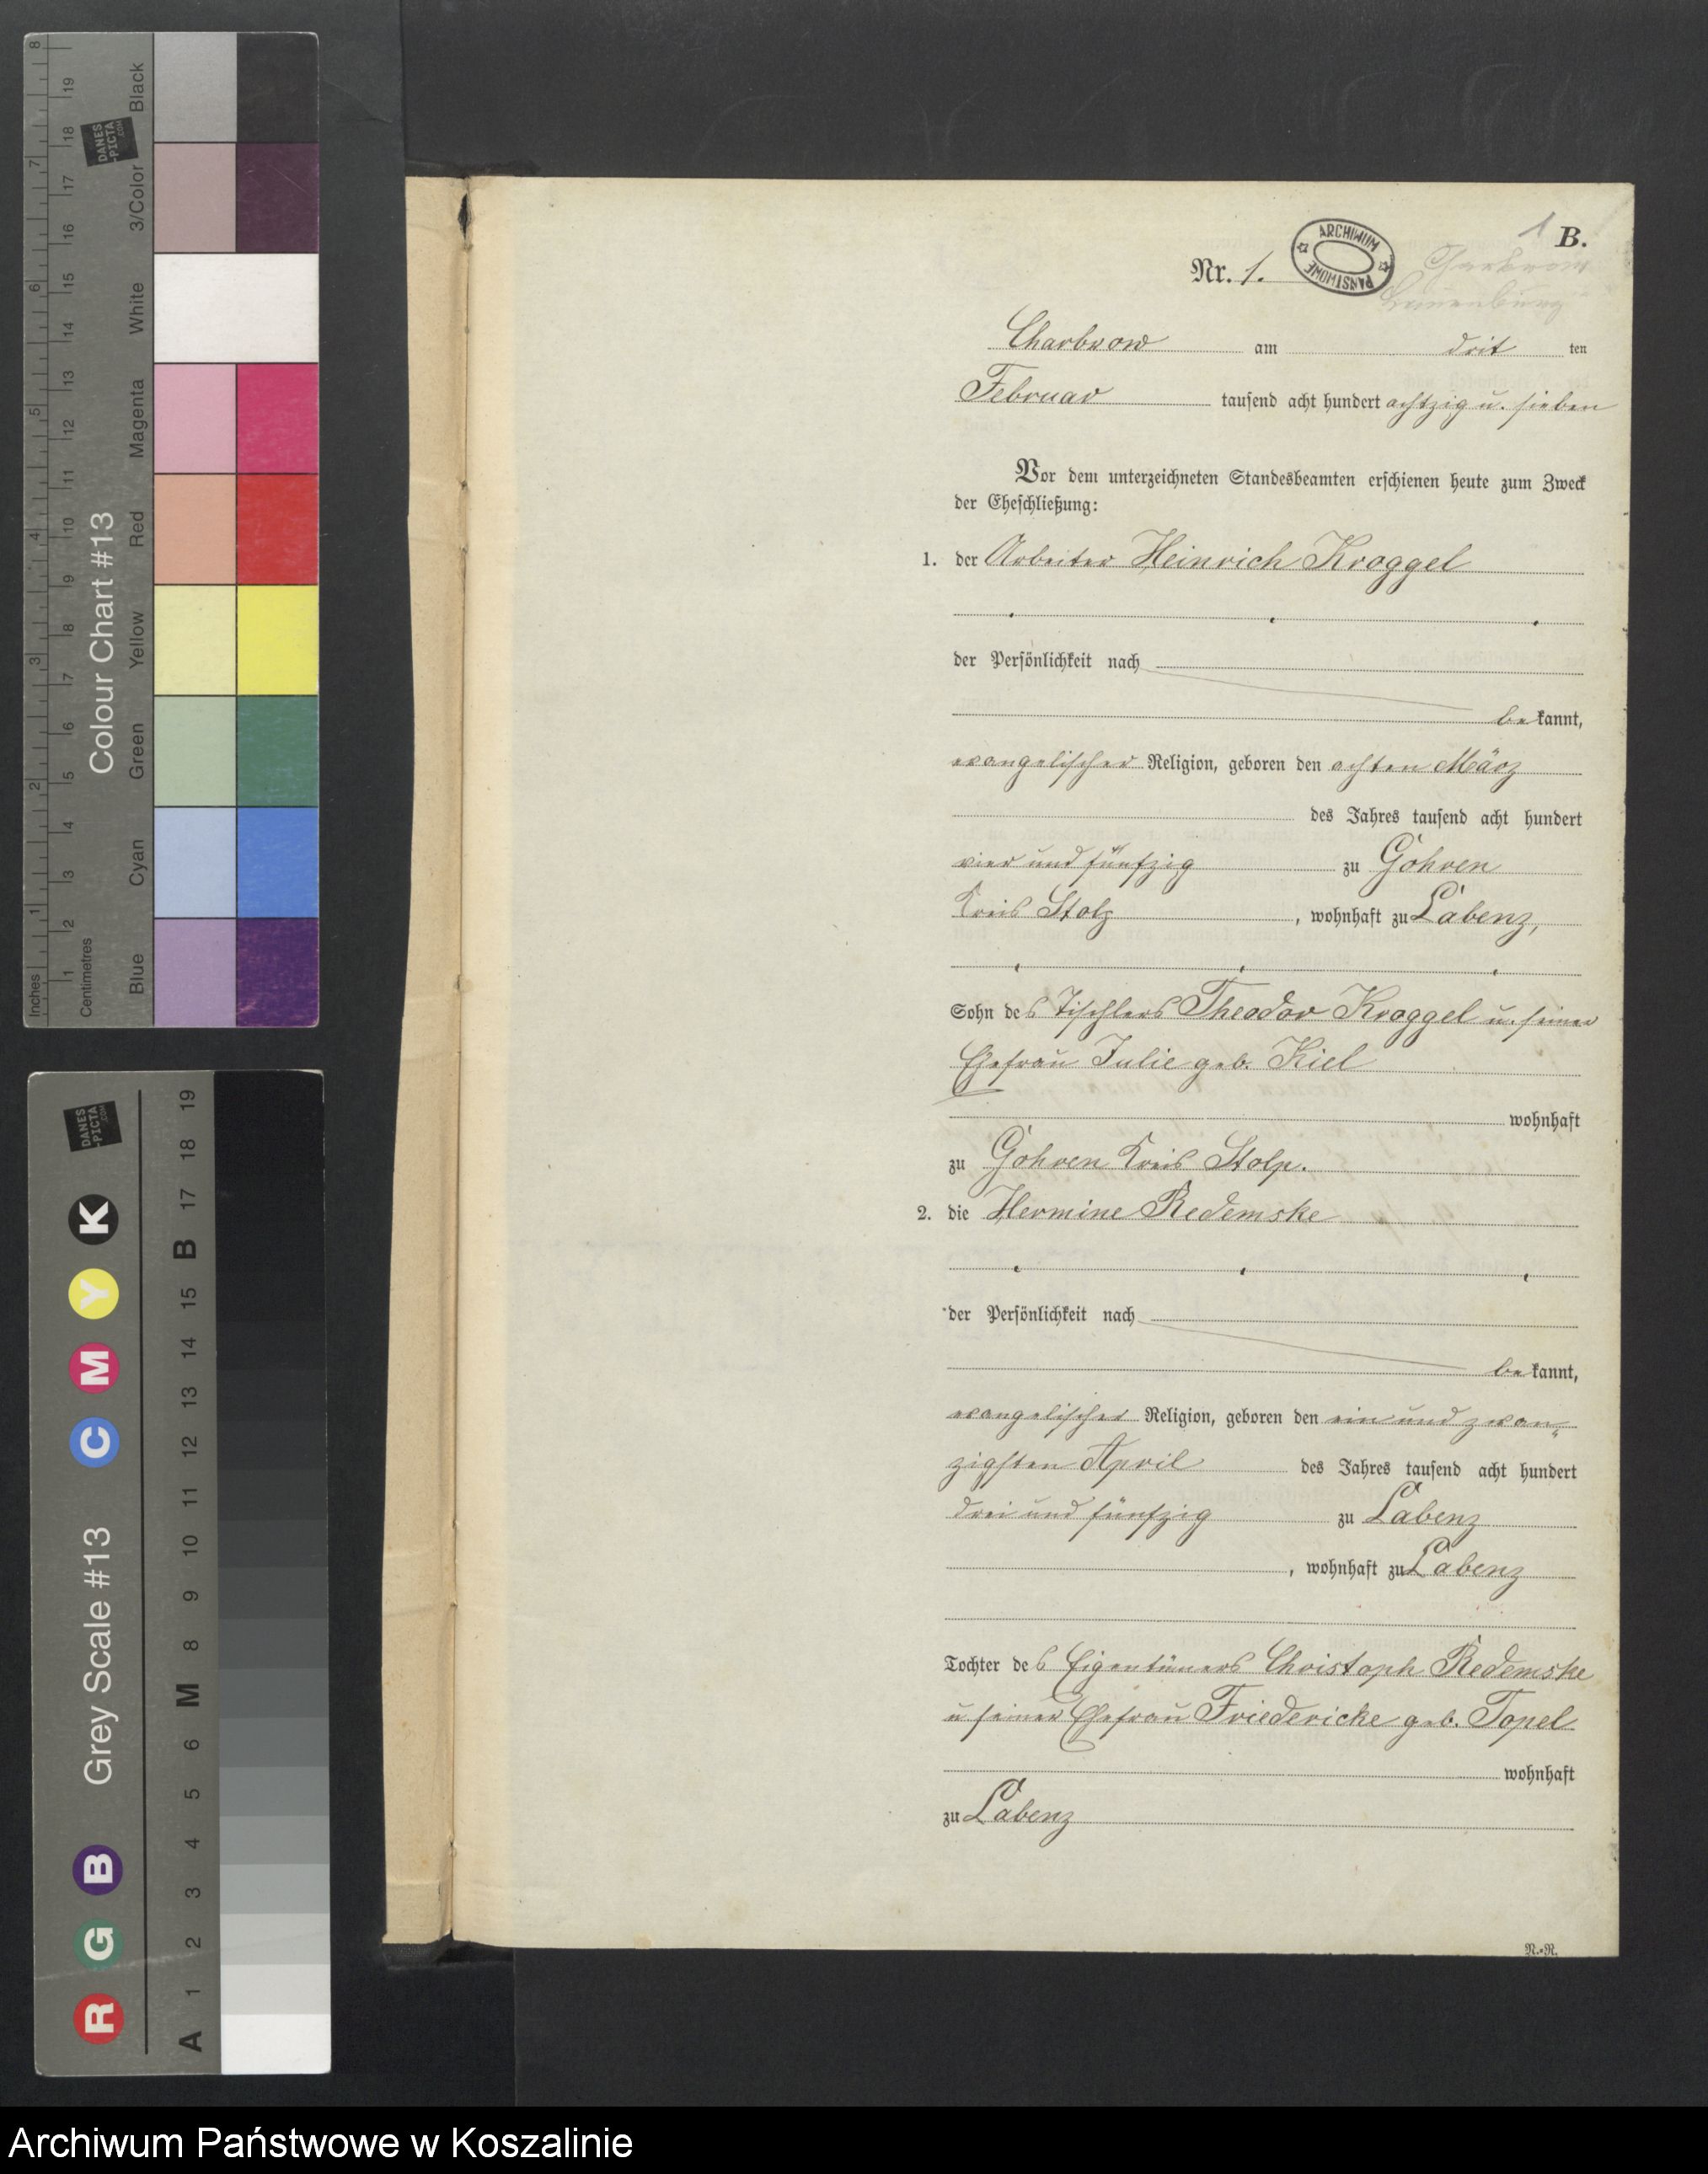 8 19 18 7 17 16 6 15 14 13 5 12 11 4 10 9 3 8 7 6 2 5 4 3 1 2 1
Inches
Centimetres
DANES
-PICTA
.COM
Colour Chart #13
Black
3/Color
White
Magenta
Red
Yellow
Green
Cyan
Blue
DANES
-PICTA
.COM
Grey Scale #13
R G B C M Y K
A 1 2 3 4 5 6 M 8 9 10 11 12 13 14 15 B 17 18 19
1 B.
Nr. 1.
ARCHIWUM PAŃSTWOWE
Charbrow
Lauenburg
Charbrow am drit ten
Februar tausend acht hundert achtzig u. sieben
Vor dem unterzeichneten Standesbeamten erschienen heute zum Zweck
der Eheschließung:
1. der Arbeiter Heinrich Kroggel
der Persönlichkeit nach
be kannt,
evangelischer Religion, geboren den achten März
des Jahres tausend acht hundert
vier und fünfzig zu Gohren
Kreis Stolp, wohnhaft zu Labenz,
Sohn des Tischlers Theodor Kroggel u. seiner
Ehefrau Julie geb. Kiel
wohnhaft
zu Gohren Kreis Stolp.
2. die Hermine Redemske
der Persönlichkeit nach
be kannt,
evangelischer Religion, geboren den ein und zwan-
zigsten April des Jahres tausend acht hundert
drei und fünfzig zu Labenz
, wohnhaft zu Labenz
Tochter des Eigentümers Christoph Redemske
u seiner Ehefrau Friedericke geb. Topel
wohnhaft
zu Labenz
N.-R.
Archiwum Państwowe w Koszalinie